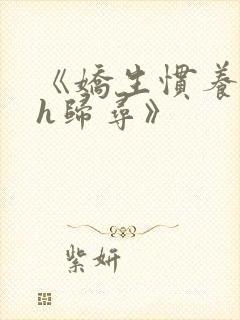 《嬌生慣養
h歸尋》
紫妍